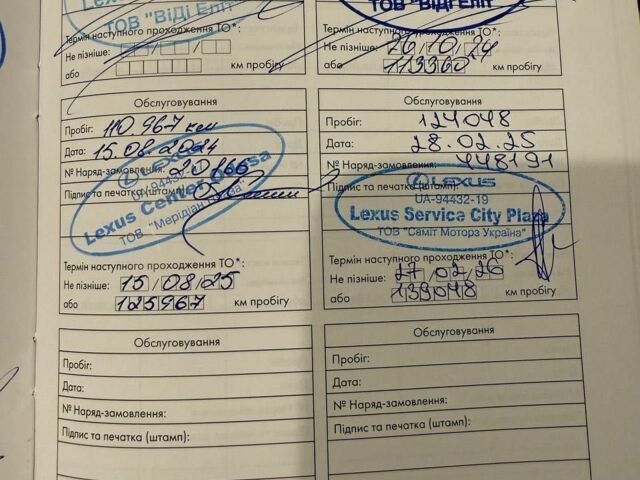 ТОВ "ВіДі Еліт"
Термін наступного проходження ТО*:
Не пізніше:
або км пробігу
ТОВ "ВіДі Еліт"
Термін наступного проходження ТО*:
Не пізніше: 26/10/24
або 113360 км пробігу
Обслуговування
Пробіг: 110.967 км
Дата: 15.08.2024
№ Наряд-замовлення: 20866
Підпис та печатка (штамп):
LEXUS
UA-94432
Lexus Center Odesa
ТОВ "Меридіан
Термін наступного проходження ТО*:
Не пізніше: 15/08/25
або 125967 км пробігу
Обслуговування
Пробіг: 124048
Дата: 28.02.25
№ Наряд-замовлення: 448191
Підпис та печатка (штамп):
LEXUS
UA-94432-19
Lexus Service City Plaza
ТОВ "Саміт Моторз Україна"
Термін наступного проходження ТО*:
Не пізніше: 27/02/26
або 139048 км пробігу
Обслуговування
Пробіг:
Дата:
№ Наряд-замовлення:
Підпис та печатка (штамп):
Обслуговування
Пробіг:
Дата:
№ Наряд-замовлення:
Підпис та печатка (штамп):